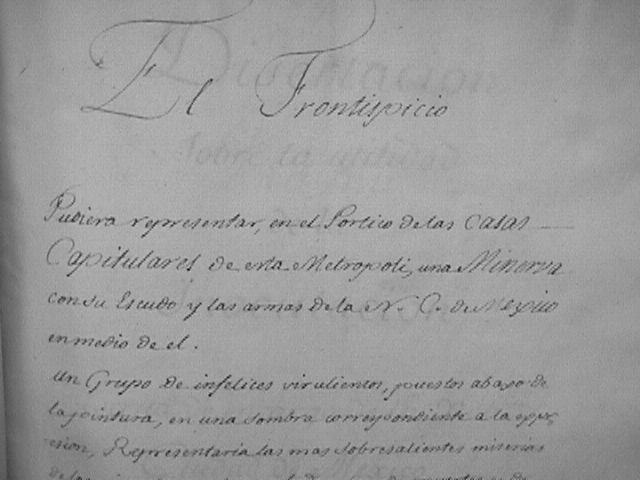 El Frontispicio
Pudiera representar, en el Portico de las Casas
Capitulares de esta Metropoli, una Minerva
con su Escudo y las armas de la N. C. de Mexico
en medio de el.
Un Grupo de infelices virulientos, puestos abaxo de
la pintura, en una sombra correspondiente a la expre
sion, Representaria las mas sobresalientes miserias